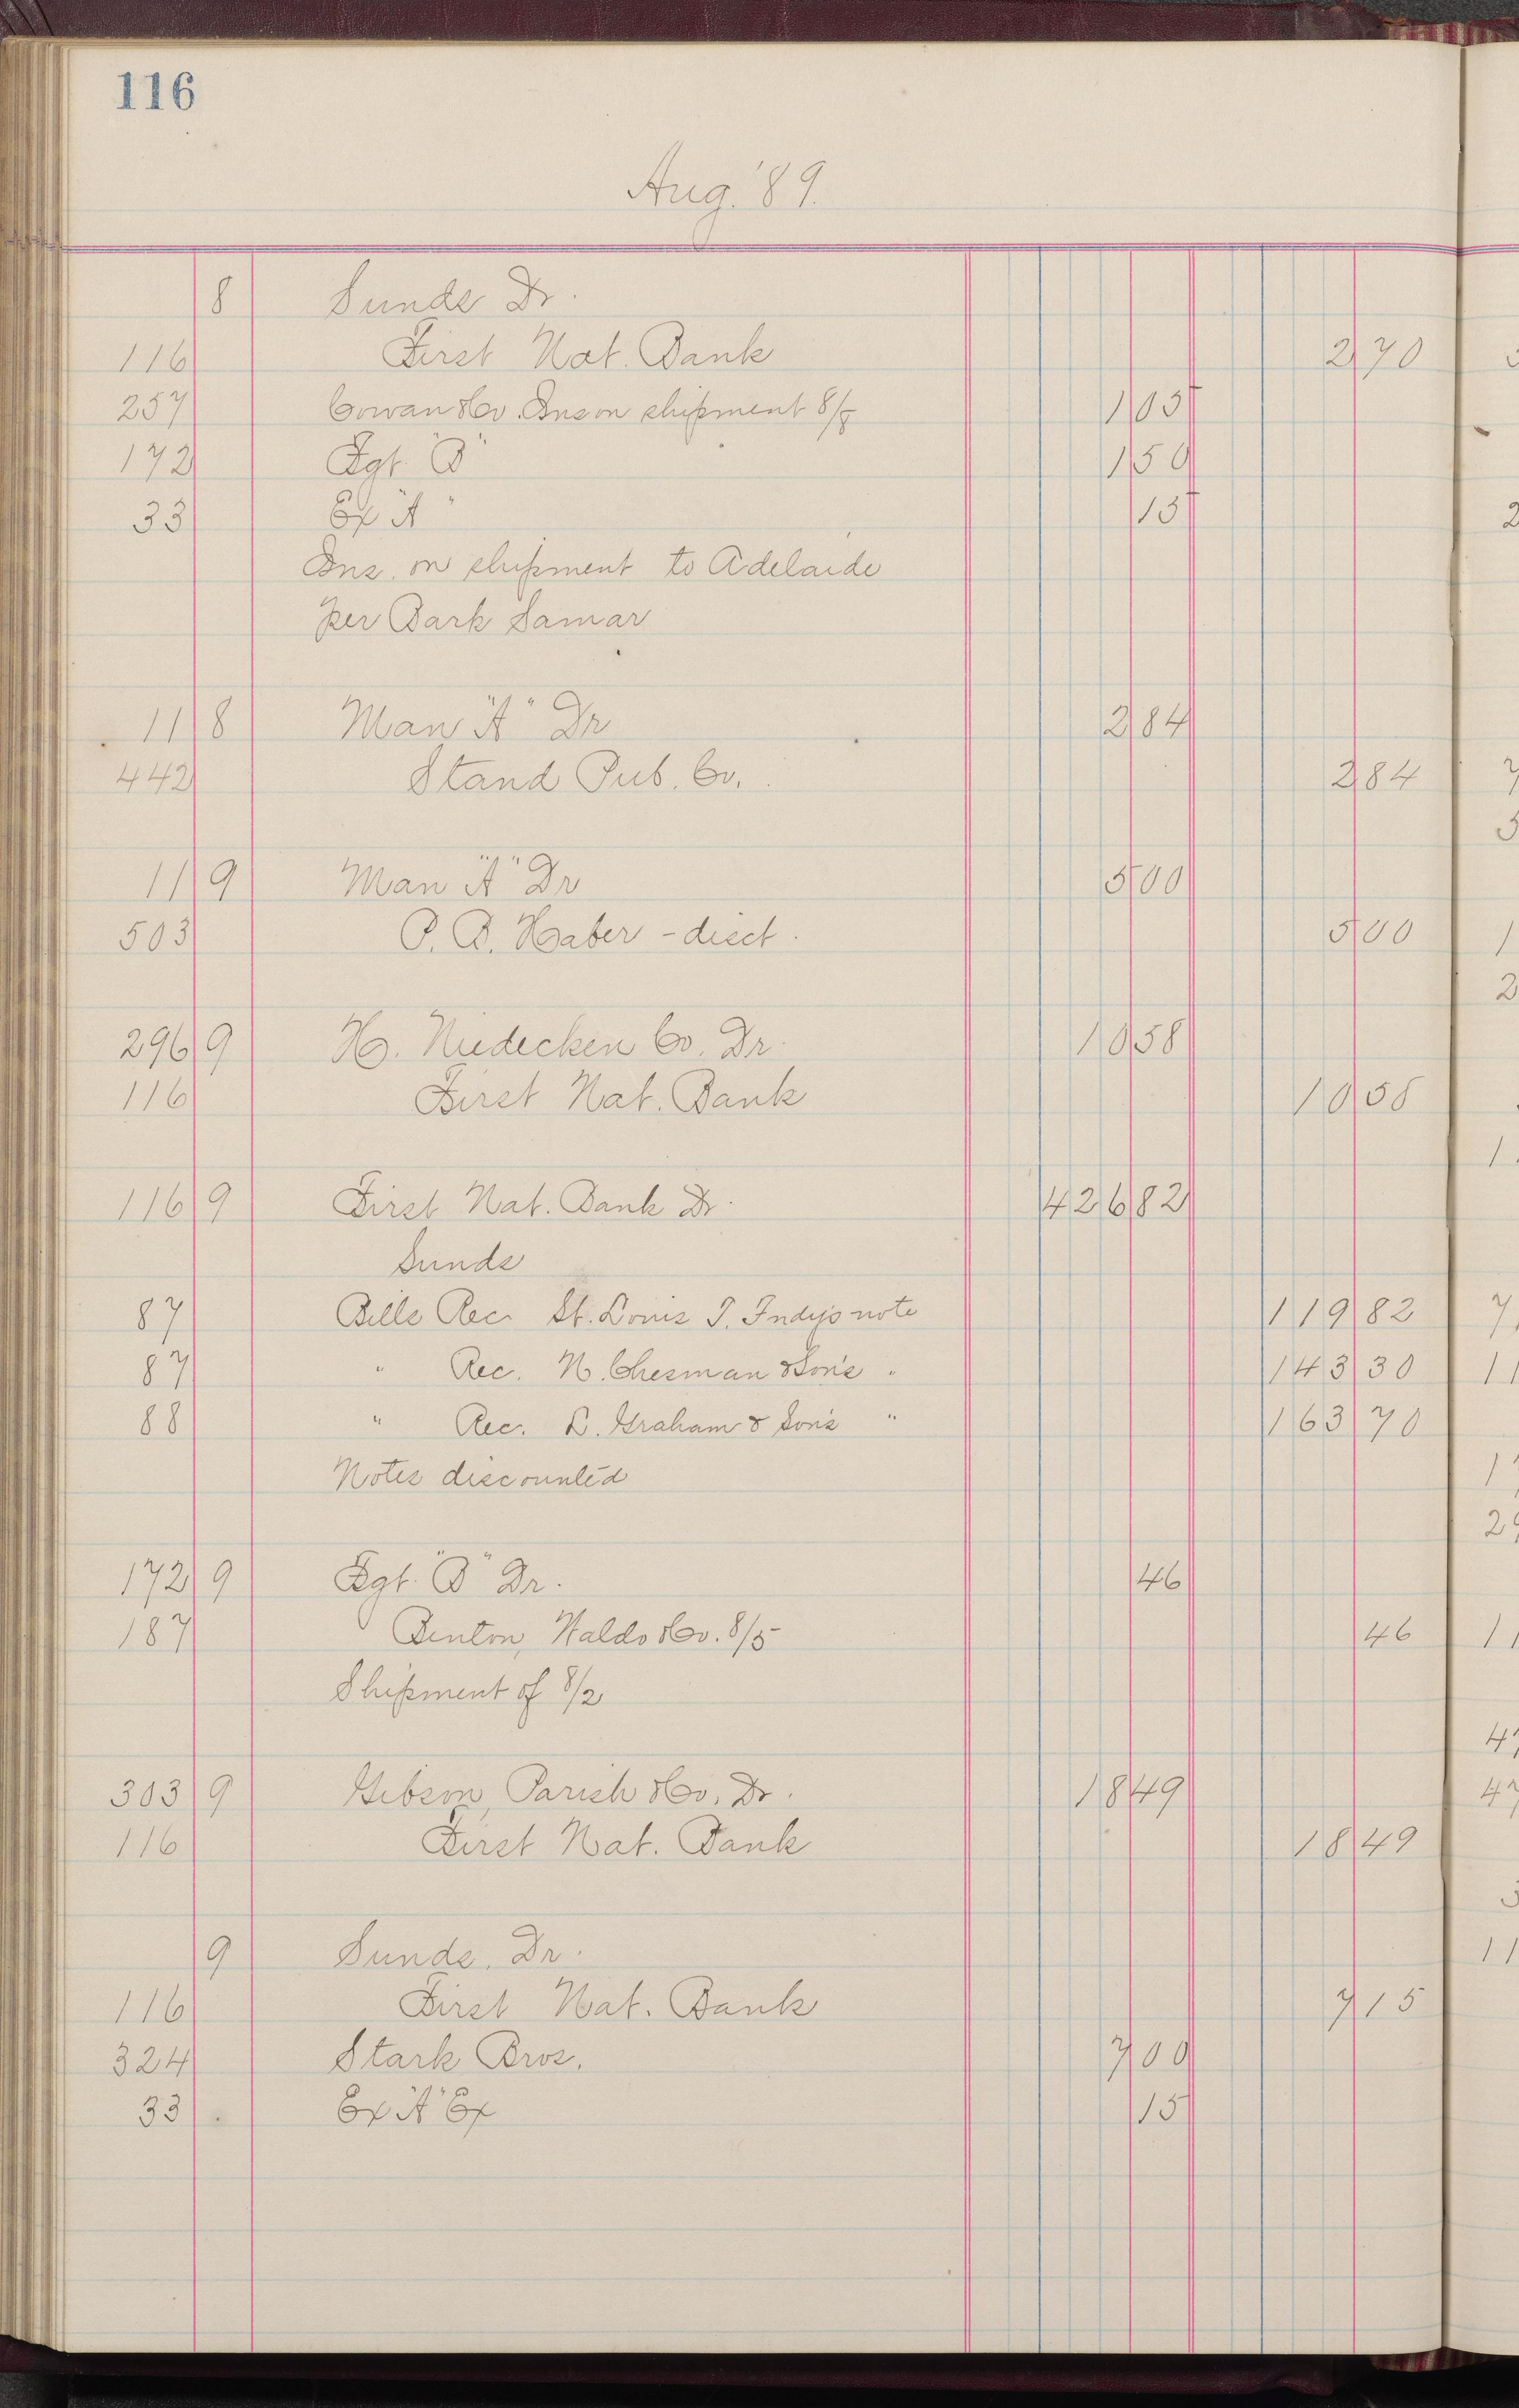 116
Aug. '89.
8 Sunds Dr.
116 First Nat. Bank 2 70
257 Cowan & Co. Ins on shipment 8/8 1 05
172 Fgt. "B" 1 50
33 Ex "A" 15
Ins. on shipment to Adelaide
per Bark Samar
11 8 Man "A" Dr 2 84
442 Stand Pub. Co. 2 84
11 9 Man "A" Dr 5 00
503 P. B. Haber - disct. 5 00
296 9 H. Niedecken Co. Dr. 10 58
116 First Nat. Bank 10 58
116 9 First Nat. Bank Dr. 426 82
Sunds
87 Bills Rec. St. Louis T. Fndy's note 119 82
87 " Rec. N. Chesman & Son's " 143 30
88 " Rec. L. Graham & Son's " 163 70
Notes discounted
172 9 Fgt. "B" Dr. 46
187 Benton, Waldo & Co. 8/5 46
Shipment of 8/2
303 9 Gibson, Parish & Co. Dr. 18 49
116 First Nat. Bank 18 49
9 Sunds. Dr.
116 First Nat. Bank 7 15
324 Stark Bros. 7 00
33 Ex "A" Ex 15